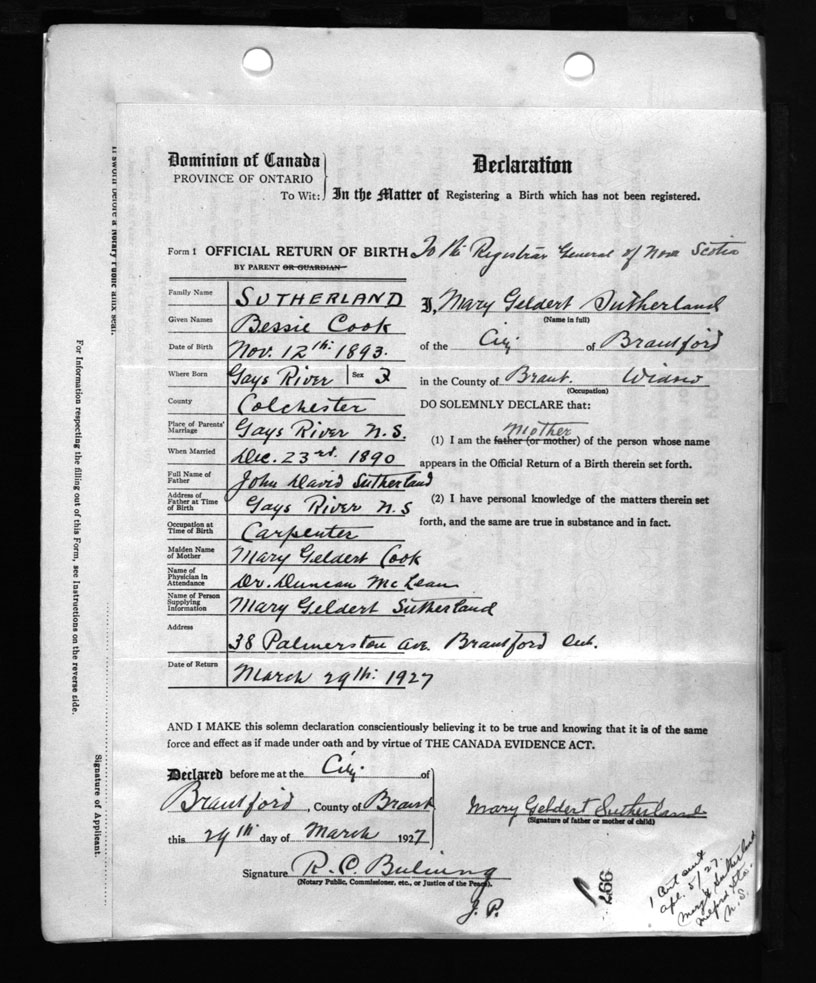 Dominion of Canada
PROVINCE OF ONTARIO
To Wit:
Declaration
In the Matter of Registering a Birth which has not been registered.
Form 1 OFFICIAL RETURN OF BIRTH
BY PARENT OR GUARDIAN
To the Registrar General of Nova Scotia
Family Name SUTHERLAND
Given Names Bessie Cook
Date of Birth Nov. 12th: 1893.
Where Born Gays River Sex F
County Colchester
Place of Parents' Marriage Gays River N.S.
When Married Dec. 23rd. 1890
Full Name of Father John David Sutherland
Address of Father at Time of Birth Gays River N.S
Occupation at Time of Birth Carpenter
Maiden Name of Mother Mary Geldert Cook
Name of Physician in Attendance Dr. Duncan McLean
Name of Person Supplying Information Mary Geldert Sutherland
Address 38 Palmerston Ave. Brantford Ont.
Date of Return March 29th: 1927
I, Mary Geldert Sutherland
(Name in full)
of the City of Brantford
in the County of Brant. Widow
(Occupation)
DO SOLEMNLY DECLARE that:
mother
(1) I am the father (or mother) of the person whose name
appears in the Official Return of a Birth therein set forth.
(2) I have personal knowledge of the matters therein set
forth, and the same are true in substance and in fact.
AND I MAKE this solemn declaration conscientiously believing it to be true and knowing that it is of the same
force and effect as if made under oath and by virtue of THE CANADA EVIDENCE ACT.
Declared before me at the City of
Brantford, County of Brant
this 29th day of March 1927
Signature R. C.
(Notary Public, Commissioner, etc., or Justice of the Peace).
J. P.
Mary Geldert Sutherland
(Signature of father or mother of child)
997
1 Cert sent
Apl. 5/27.
Mary G Sutherland
Milford Sta.
N.S.
If sworn before a Notary Public affix seal.
For Information respecting the filling out of this Form, see Instructions on the reverse side.
Signature of Applicant.